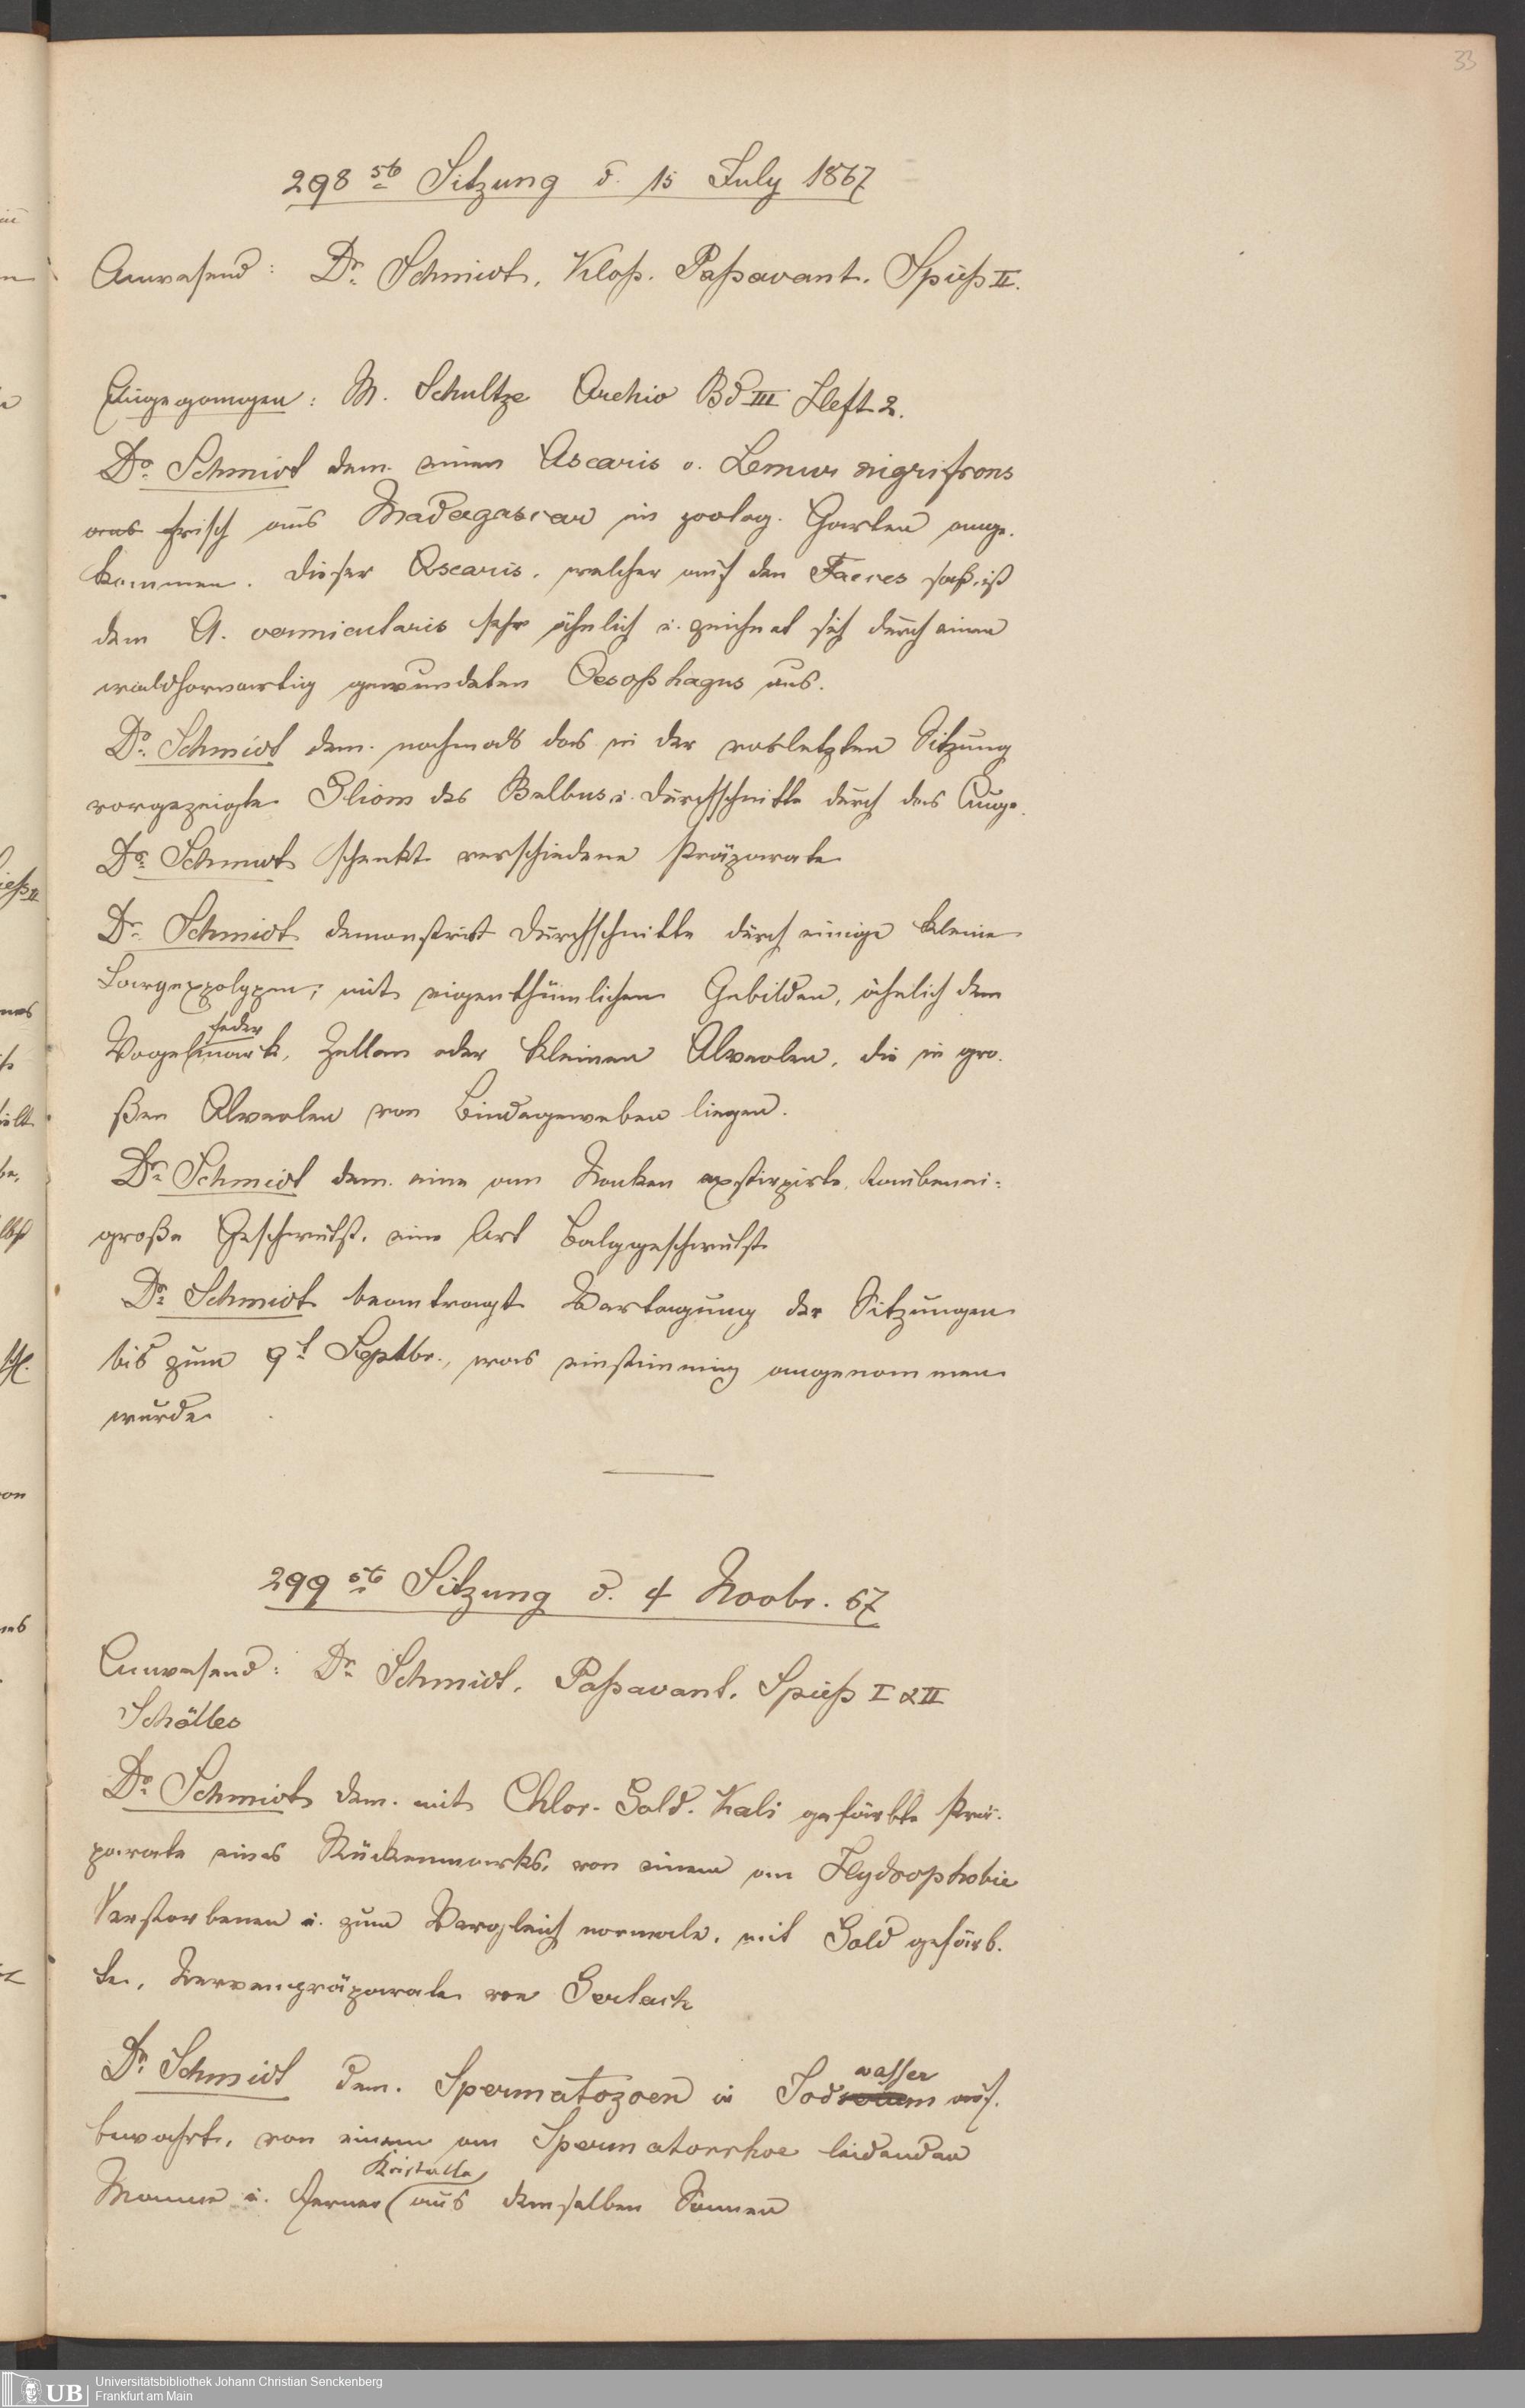 33
298ste Sitzung d. 15 July 1867
Anwesend: Dr. Schmidt, Kloß. Paßavant. Spieß II.
Eingegangen: M. Schultze Archiv Bd III Heft 2.
Dr. Schmidt dem. einen Ascaris v. Lemur nigrifrons
aus frisch aus Madagascar im zoolog. Garten ange-
kommen. Dieser Ascaris, welcher auf den Faeces saß, ist
dem A. vermicularis sehr ähnlich u. zeichnet sich durch einen
waldhornartig gewundeten Oesophagus aus.
Dr. Schmidt dem. nochmals das in der vorletzten Sitzung
vorgezeigte Gliom des Bulbus u. Durchschnitte durch das Auge.
Dr. Schmidt schenkt verschiedene Präparate
Dr. Schmidt demonstrirt Durchschnitte durch einige kleine
Larynxpolypen; mit eigenthümlichen Gebilden, ähnlich dem
feder
Vogelmark, Zellen oder kleinen Alveolen, die in gro-
ßen Alveolen von Bindegeweben liegen.
Dr. Schmidt dem. eine am Nacken exstirpirte, taubenei-
große Geschwulst, eine Art Balggeschwulst
Dr. Schmidt beantragt Vertagung der Sitzungen
bis zum 9t Septbr., was einstimmig angenommen
wurde
299ste Sitzung d. 4 Novbr. 67
Anwesend: Dr. Schmidt, Paßavant, Spieß I & II
Schölles
Dr. Schmidt dem. mit Chlor-Gold-Kali gefärbte Prä-
parate eines Rückenmarks, von einem an Hydrophobie
Verstorbenen u. zum Vergleich normale, mit Gold gefärb-
te, Nervenpräparate von Gerlach
wasser
Dr. Schmidt dem. Spermatozoen in Jod auf-
bewahrt, von einem an Spermatorrhoe leidenden
Kristalle
Manne u. ferner aus demselben Samen
UB Universitätsbibliothek Johann Christian Senckenberg
Frankfurt am Main